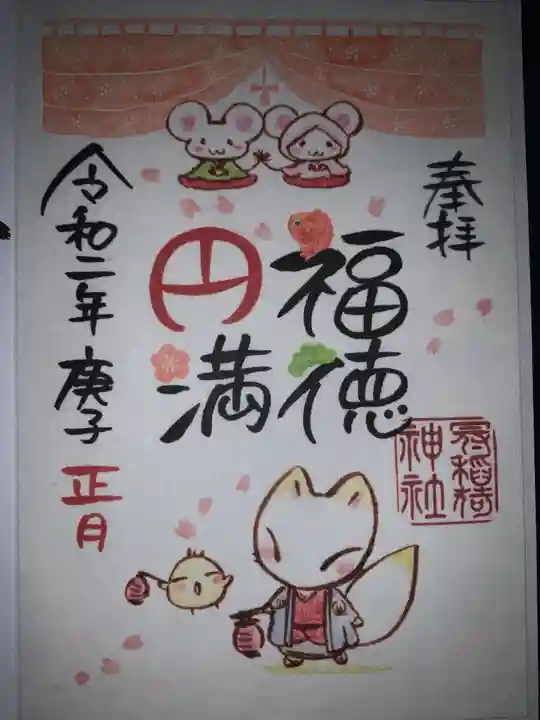 奉拝
福徳
円満
令和二年 庚子 正月
冠稲荷
神社